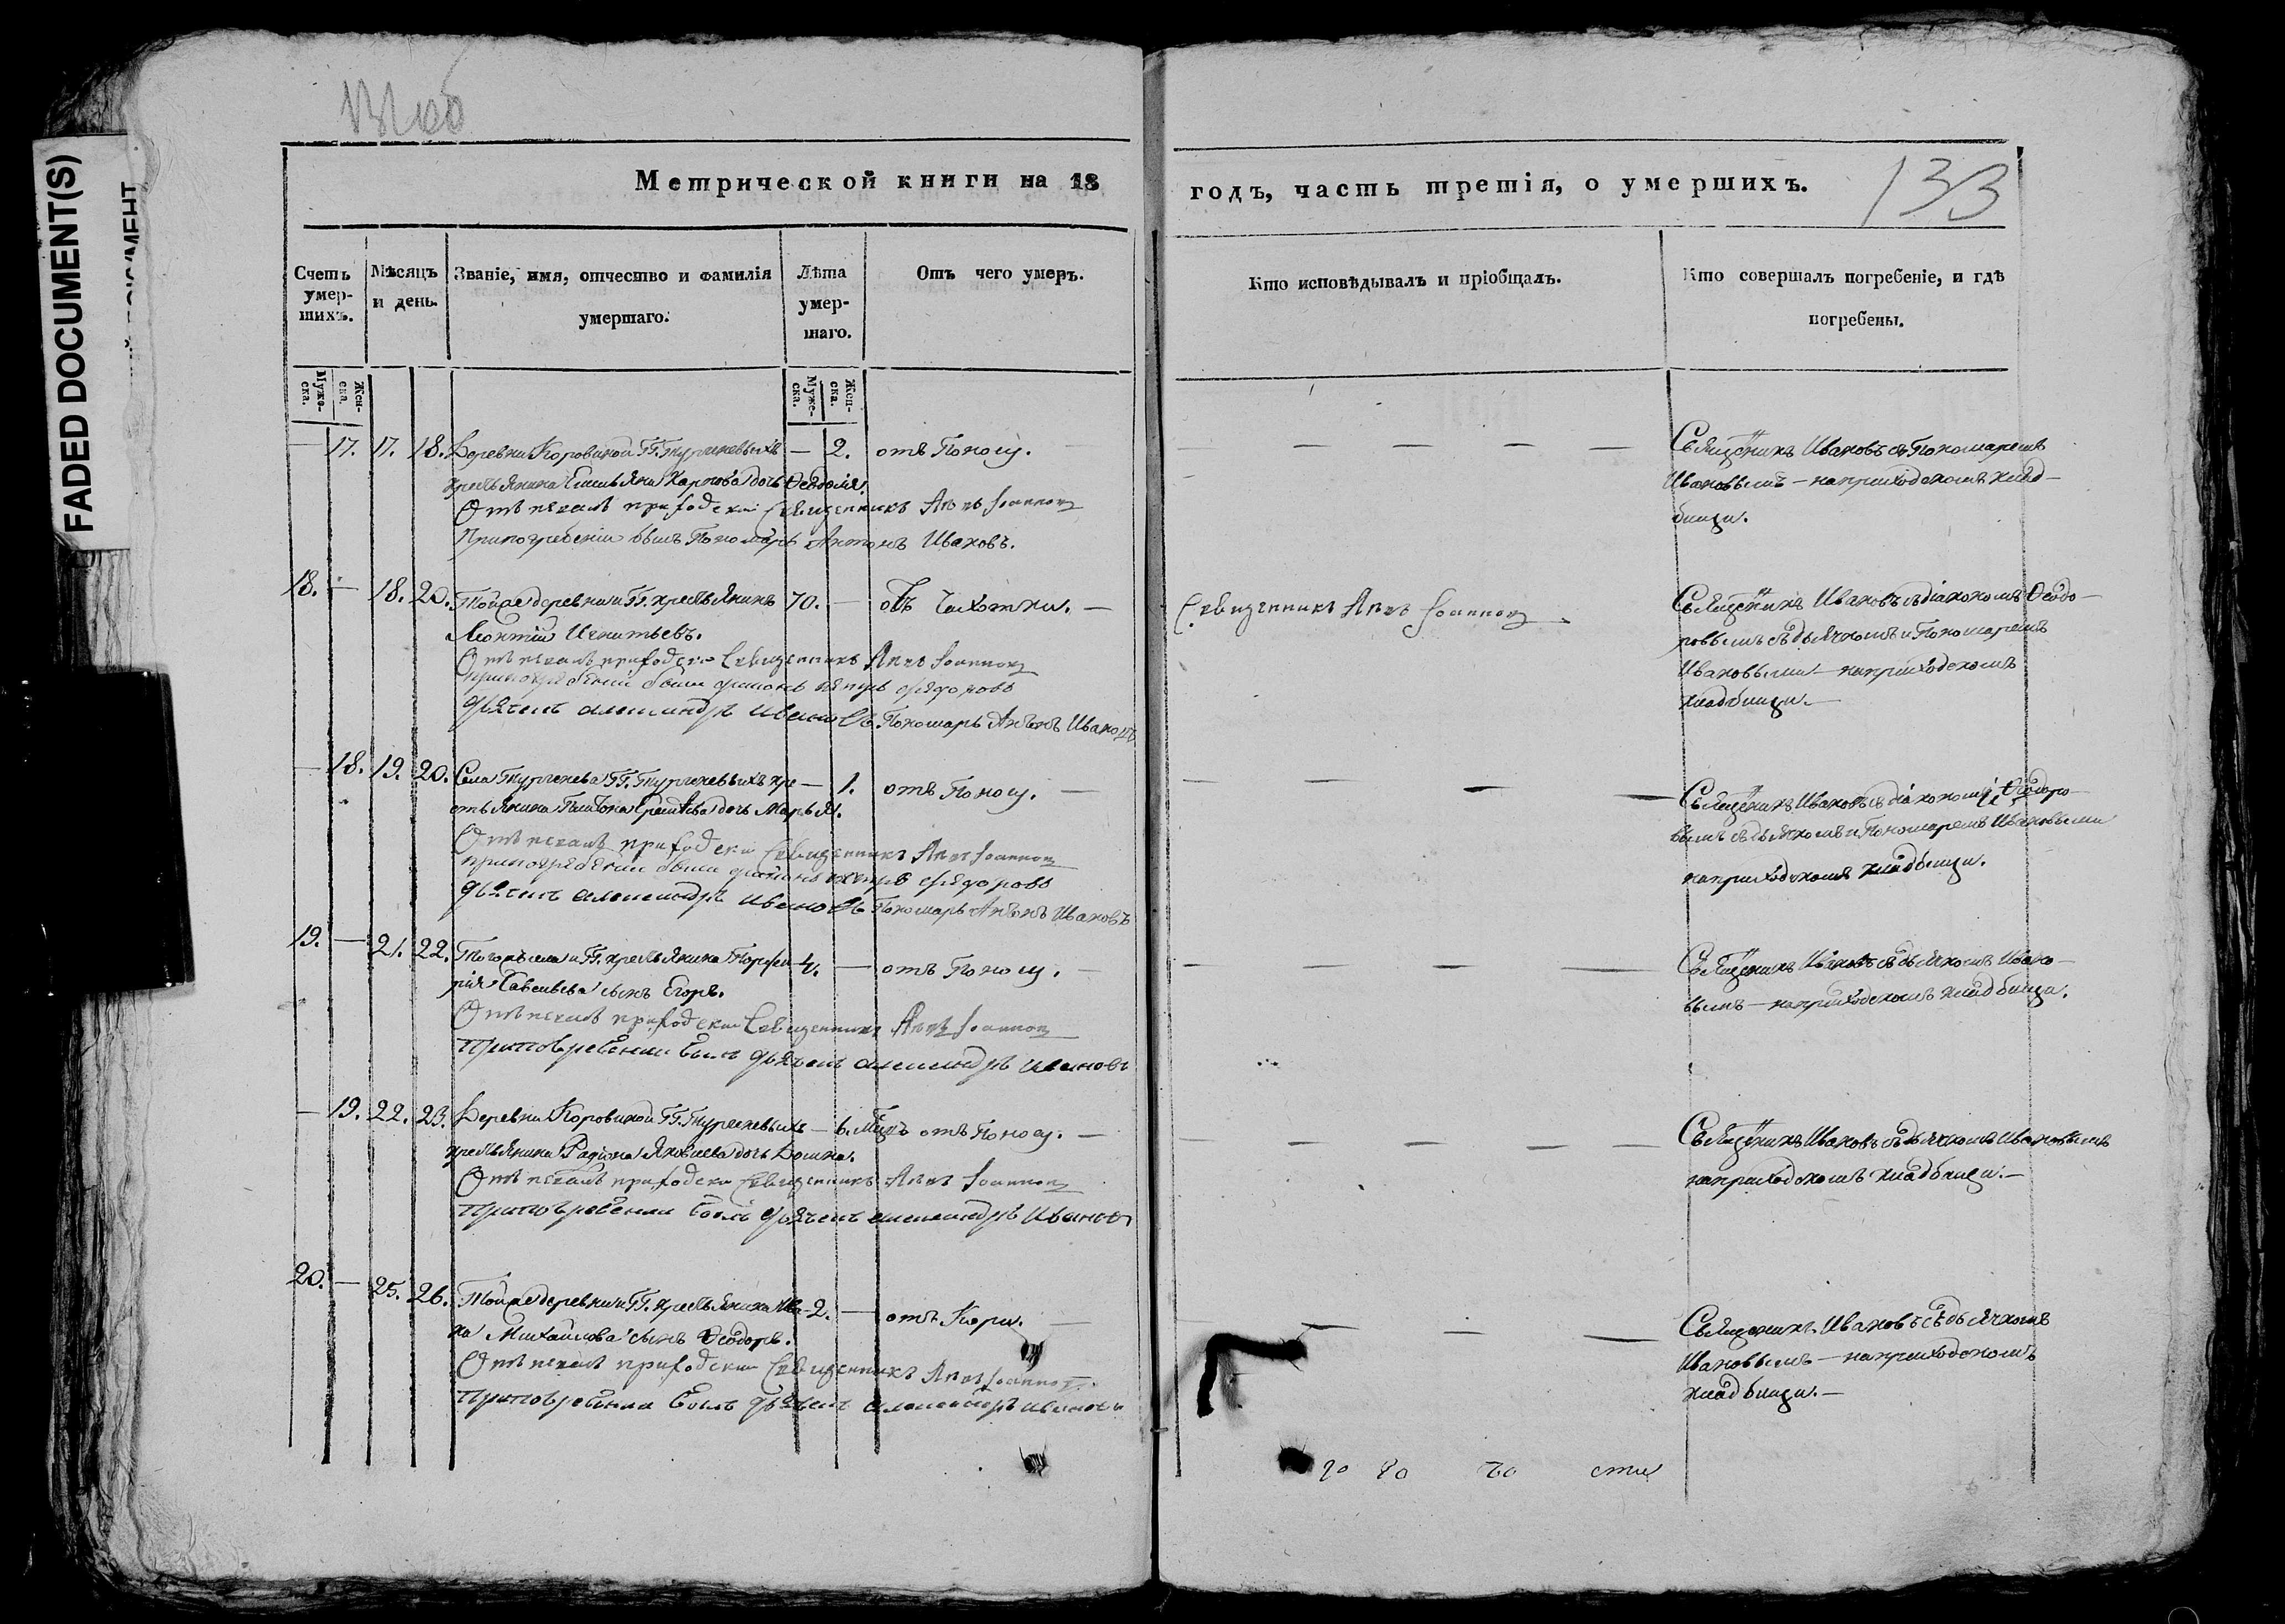 FADED DOCUMENT(S)
Метрической книги на 18
годъ, часть третія, о умершихъ.
133
Счетъ умер-шихъ.
Мѣсяцъ и день.
Званіе, имя, отчество и фамилія умершаго.
Лѣта умер-шаго.
Отъ чего умеръ.
Кто исповѣдывалъ и пріобщалъ.
Кто совершалъ погребеніе, и гдѣ погребены.
Муже-ска.
Жен-ска.
Муже-ска.
Жен-ска.
— 17. 17. 18. Деревни Коровиной ГГ. Тургеневыхъ — 2. отъ Поносу. —
крестьянина Емельяна Карпова дочь Феодосія.
Отпевалъ приходски Священникъ Іоаннов
При погребеніи былъ Пономарь Антонъ Ивановъ.
Священникъ Ивановъ съ Пономаремъ
Ивановымъ — на приходскомъ клад-
бищи.
18. — 18. 20. Тойже деревни и ГГ. крестьянинъ 70. — отъ Чахотки. —
Леонтій Игнатьевъ.
Отпевалъ приходски Священникъ Іоаннов
при погребении были диаконъ петръ федоровъ
дьячекъ александръ ивановъ Пономарь Антонъ Ивановъ
Священникъ Іоаннов
Священникъ Ивановъ съ діакономъ Феодо-
ровымъ съ дьячкомъ и Пономаремъ
Ивановыми — на приходскомъ
кладбищи. —
— 18. 19. 20. Села Тургенева ГГ. Тургеневыхъ кре- — 1. отъ Поносу. —
стьянина Платона дочь Марья.
Отпевалъ приходски Священникъ Іоаннов
при погребении были диаконъ петръ федоровъ
дьячекъ александръ ивановъ Пономарь Антонъ Ивановъ
Священникъ Ивановъ съ діакономъ Феодоро-
вымъ съ дьячкомъ и Пономаремъ Ивановыми
на приходскомъ кладбищи.
19. — 21. 22. Тогожъ села и ГГ. крестьянина Порфи- 4. — отъ Поносу. —
рія Савельева сынъ Егоръ.
Отпевалъ приходски Священникъ Іоаннов
При погребении былъ дьячекъ александръ ивановъ
Священникъ Ивановъ съ дьячкомъ Ивано-
вымъ — на приходскомъ кладбищи.
— 19. 22. 23. Деревни Коровиной ГГ. Тургеневыхъ — 6. Мѣся отъ Поносу. —
крестьянина Радіона Яковлева дочь Домна.
Отпевалъ приходски Священникъ Іоаннов
При погребении былъ дьячекъ александръ Иванов
Священникъ Ивановъ съ дьячкомъ Ивановымъ
на приходскомъ кладбищи. —
20. — 25. 26. Тойже деревни и ГГ. крестьянина Ива- 2. — отъ Кори. —
на Михайлова сынъ Феодоръ.
Отпевалъ приходски Священникъ Іоаннов
При погребении былъ дьячекъ александръ иванов
Священникъ Ивановъ съ дьячкомъ
Ивановымъ — на приходскомъ
кладбищи. —